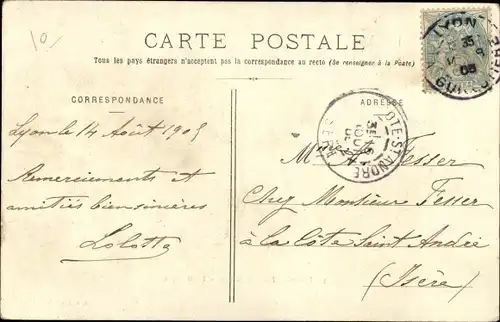 10
CARTE POSTALE
Tous les pays étrangers n'acceptent pas la correspondance au recto (Se renseigner à la Poste)
CORRESPONDANCE
ADRESSE
LYON
COTE-ST-ANDRE
ISERE
Lyon le 14 Août 1905
Remerciements et
amitiés bien sincères
Lolotte
Tesser
Chez Monsieur Tesser
à la Côte Saint André
(Isère)